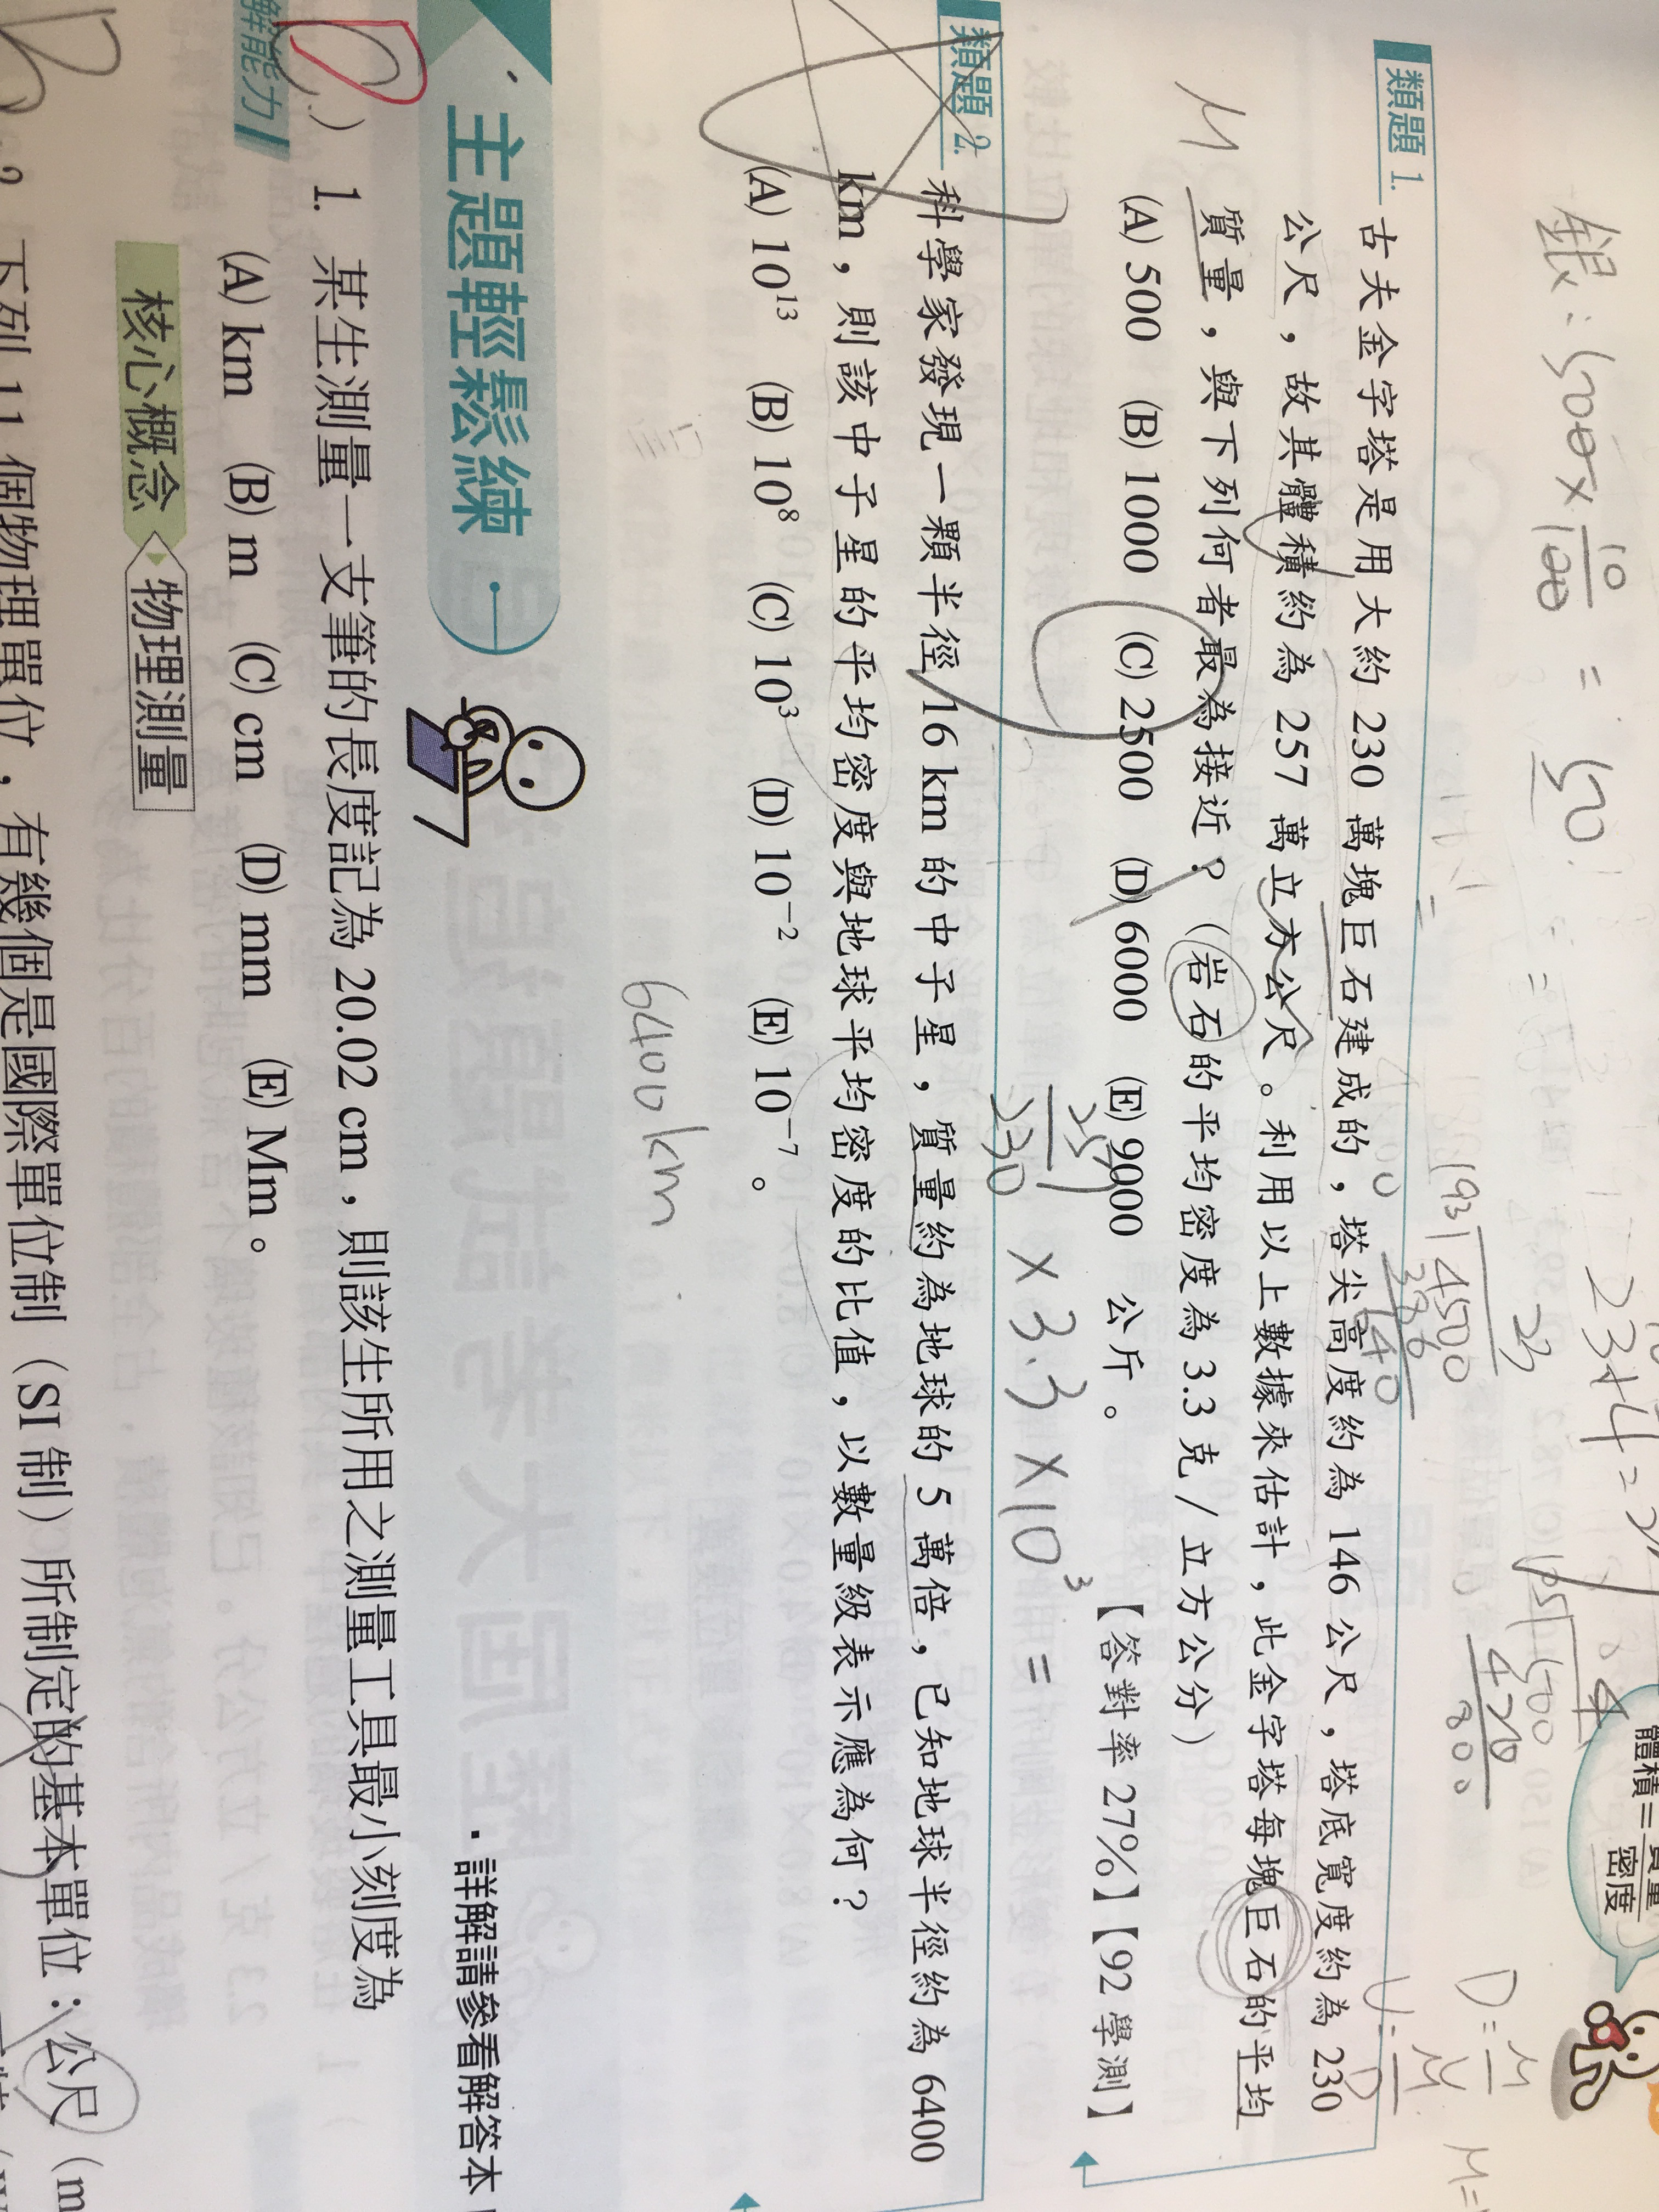 銀：500 × 10/100 = 50
23+4=
體積=質量/密度
193 4500 23
386
640
105 500 4
420
80
D=M/V
V=M/D
M=
類題 1.
古夫金字塔是用大約 230 萬塊巨石建成的，塔尖高度約為 146 公尺，塔底寬度約為 230
公尺，故其體積約為 257 萬立方公尺。利用以上數據來估計，此金字塔每塊巨石的平均
質量，與下列何者最為接近？（岩石的平均密度為 3.3 克 / 立方公分）
M
(A) 500 (B) 1000 (C) 2500 (D) 6000 (E) 9000 公斤。
【答對率 27%】【92 學測】
257/230 × 3.3 × 10³ =
類題 2.
科學家發現一顆半徑 16 km 的中子星，質量約為地球的 5 萬倍，已知地球半徑約為 6400
km，則該中子星的平均密度與地球平均密度的比值，以數量級表示應為何？
(A) 10¹³ (B) 10⁸ (C) 10³ (D) 10⁻² (E) 10⁻⁷。
6400 km
主題輕鬆練
．詳解請參看解答本
( ) 1. 某生測量一支筆的長度記為 20.02 cm，則該生所用之測量工具最小刻度為
(A) km (B) m (C) cm (D) mm (E) Mm。
解能力
核心概念 物理測量
下列 11 個物理單位，有幾個是國際單位制（SI 制）所制定的基本單位：公尺（m